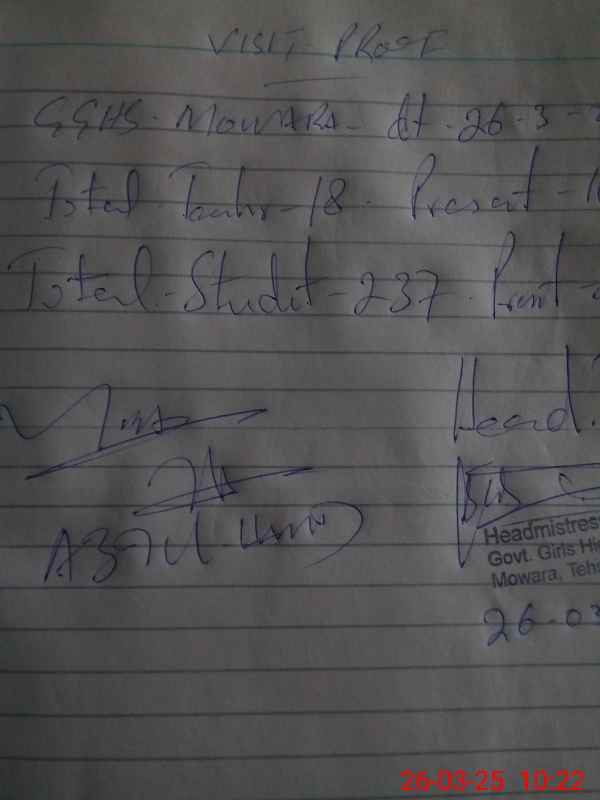 VISIT PROOF
GGHS. MOWARA - dt. 26-3-
Total - 18. Present -
Total - Studt - 237. Prsnt -
Head
ABDUL
Headmistress
Govt. Girls Hi
Mowara, Teh
26-03
26-03-25 10:22